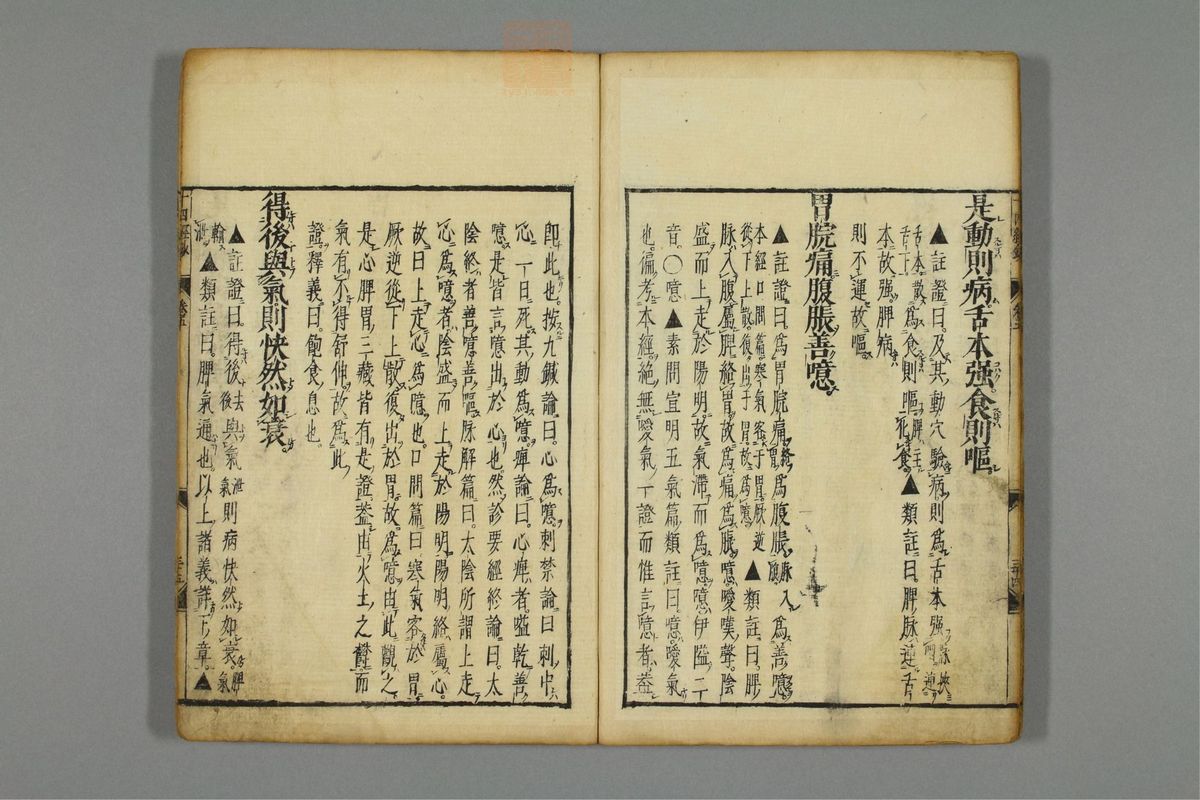 是動則病舌本強食則嘔
▲註證曰及其動穴驗病則為舌本強脉挾連
舌本散為食則嘔脾主化食▲類註曰脾脉連舌
舌下
本故強脾病
則不運故嘔
胃脘痛腹脹善噫
▲註證曰為胃脘痛絡胃為腹脹脉入腹為善噫
本經口問篇寒氣客于胃厥逆▲類註曰脾
從下上散復出于胃故為噫
脉入腹屬脾絡胃故為痛為脹噫噯嘆聲陰
盛而上走於陽明故氣滯而為噫噫伊隘二
音〇噫▲素問宣明五氣篇類註曰噫噯氣
也徧考本經絕無噯氣一證而惟言噫者葢
卽此也按九鍼論曰心為噫刺禁論曰刺中
心一日死其動為噫痺論曰心痺者嗌乾善
噫是皆言噫出於心也然診要經終論曰太
陰終者善噫善嘔脉解篇曰太陰所謂上走
心為噫者陰盛而上走於陽明陽明絡屬心
故曰上走心為噫也口問篇曰寒氣客於胃
厥逆後下上散復出於胃故為噫由此觀之
是心脾胃三藏皆有是證葢由火土之鬱而
氣有不得舒伸故為此
證釋義曰飽食息也
得後與氣則快然如衰
▲註證曰得後去後與氣泄氣則病快然如衰脾氣
輸泄▲類註曰脾氣通也以上諸義詳下章▲